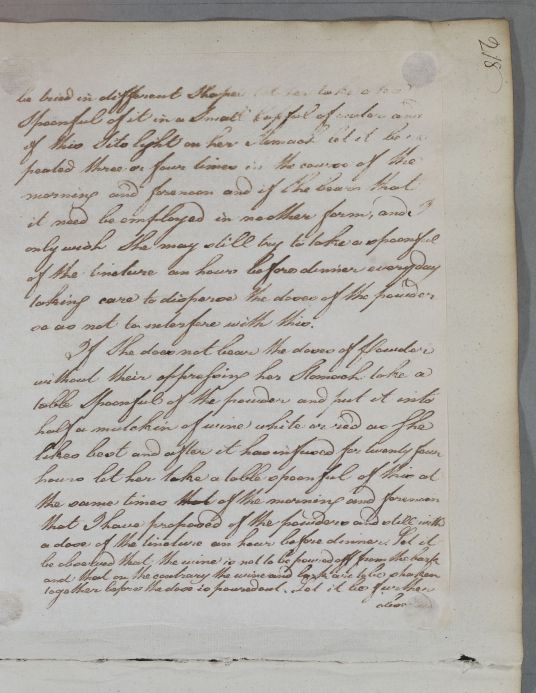 218
be tried in different Shapes let her take a tea
Spoonful of it in a Small Cupful of water and
if this Sits light on her Stomach let it be re
peated three or four times in the course of the
morning and forenoon and if She bears that
it need be employed in no other form, and I
only wish She may still try to take a spoonful
of the tincture an hour before dinner every day
taking care to disperse the doses of the powder
so as not to interfere with this.
If She does not bear the doses of Powder
without their oppressing her Stomach take a
table Spoonful of the powder and put it into
half a mutchkin of wine white or red as She
likes best and after it has infused for twenty four
hours let her take a table spoonful of this at
the same times of the morning and forenoon
that I have proposed of the powders and still with
a dose of the tincture an hour before dinner. Let it
be observed that the wine is not to be poured off from the bark
and that on the contrary the wine and bark are to be shaken
together before the dose is poured out. Let it be further